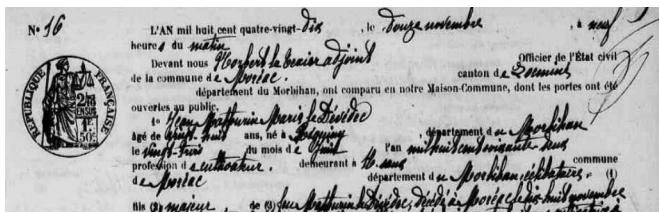 N° 16
L'AN mil huit cent quatre-vingt-dix, le douze novembre, à neuf
heures du matin
Devant nous Norbert Le adjoint Officier de l'État civil
de la commune de Moréac, canton de Locminé
département du Morbihan, ont comparu en notre Maison-Commune, dont les portes ont été
ouvertes au public,
1° Jean Mathurin Marie Le Dévédec
âgé de vingt-huit ans, né à Réguiny, département du Morbihan
le vingt-trois du mois de Juin l'an mil huit cent soixante deux
profession de cultivateur, demeurant à commune
de Moréac département du Morbihan, célibataire, (1)
fils (2) majeur de (3) feu Mathurin Le Dévédec, décédé à Moréac le dix-huit novembre
RÉPUBLIQUE FRANÇAISE
2/10 EN SUS
1F 50c